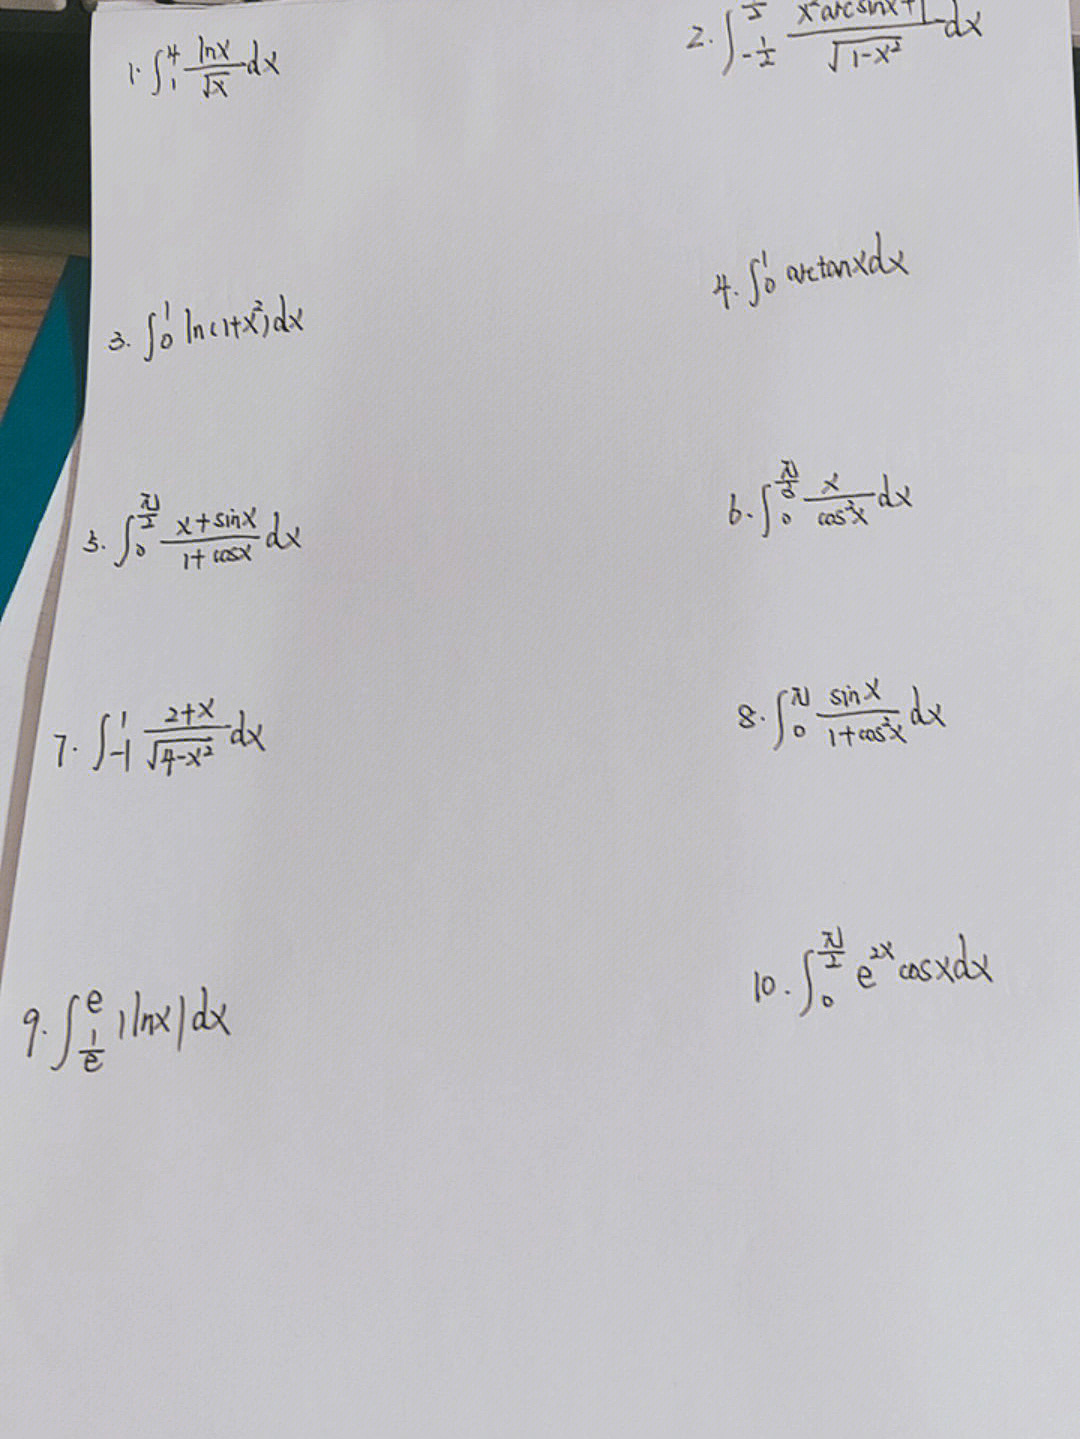 1. ∫₁⁴ lnx/√x dx
2. ∫_{-1/2} (x²arcsinx+1)/√(1-x²) dx
3. ∫₀¹ ln(1+x²)dx
4. ∫₀¹ arctanxdx
5. ∫₀^{π/2} (x+sinx)/(1+cosx) dx
6. ∫₀ x/cos²x dx
7. ∫₋₁¹ (2+x)/√(4-x²) dx
8. ∫₀^π sinx/(1+cos²x) dx
9. ∫_{1/e}^e |lnx|dx
10. ∫₀^{π/2} e^{2x}cosxdx